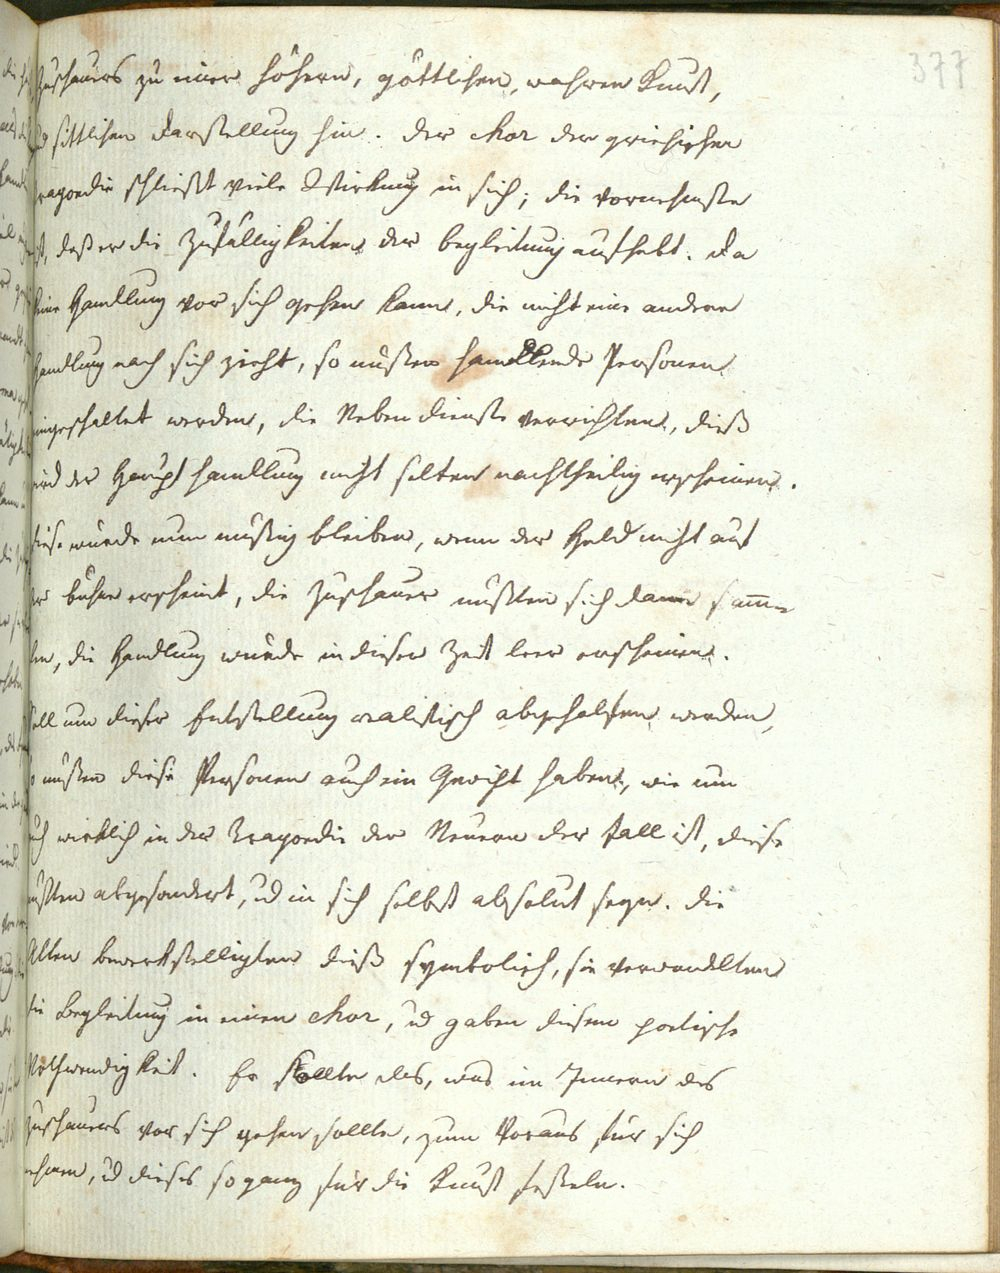 377
Zuschauers zu einer höhern, göttlichen, wahren Kunst,
ud sittlichen Darstellung hin. Der Chor der griechischen
Tragoedie schließt viele Wirkung in sich; die vornehmste
ist, daß er die Zufälligkeiten der Begleitung aufhebt. Da
keine Handlung vor sich gehen kann, die nicht eine andere
Handlung nach sich zieht, so mußten handlende Personen
eingeschaltet werden, die Nebendienste verrichten, dieß
wird der Haupthandlung nicht selten nachtheilig erscheinen.
Diese würde nun müßig bleiben, wenn der Held nicht auf
der Bühne erscheint, die Zuschauer müßten sich dann sam̅-
len, die Handlung würde in dieser Zeit leer erscheinen.
Soll nun dieser Entstellung realistisch abgeholfen werden,
so müßen diese Personen auch ein Gewicht haben, wie nun
auch wirklich in der Tragoedie der Neuern der Fall ist, diese
müßten abgesondert, ud in sich selbst absolut seyn. Die
Alten bewerkstelligten dieß symbolisch, sie verwandelten
die Begleitung in einen Chor, ud gaben diesem poetische
Nothwendigkeit. Er sollte das, was im Innern des
Zuschauers vor sich gehen sollte, zum Voraus für sich
nehmen, ud dieses so ganz für die Kunst fesseln.